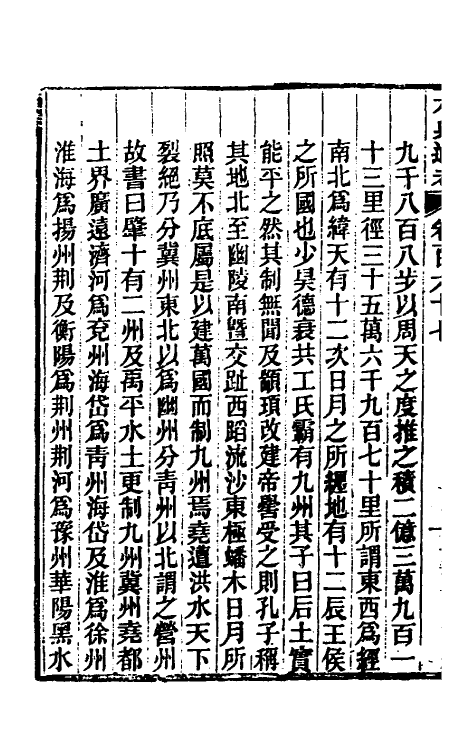 卷百六十七
九千八百八步以周天之度推之積二億三萬九百一
十三里徑三十五萬六千九百七十里所謂東西爲經
南北爲緯天有十二次日月之所纏地有十二辰王侯
之所國也少昊德衰共工氏霸有九州其子曰后土實
能平之然其制無聞及顓頊改建帝嚳受之則孔子稱
其地北至幽陵南曁交趾西蹈流沙東極蟠木日月所
照莫不底屬是以建萬國而制九州焉堯遭洪水天下
裂絕乃分冀州東北以爲幽州分靑州以北謂之營州
故書曰肇十有二州及禹平水土更制九州冀州堯都
土界廣遠濟河爲兗州海岱爲靑州海岱及淮爲徐州
淮海爲揚州荆及衡陽爲荆州荆河爲豫州華陽黑水